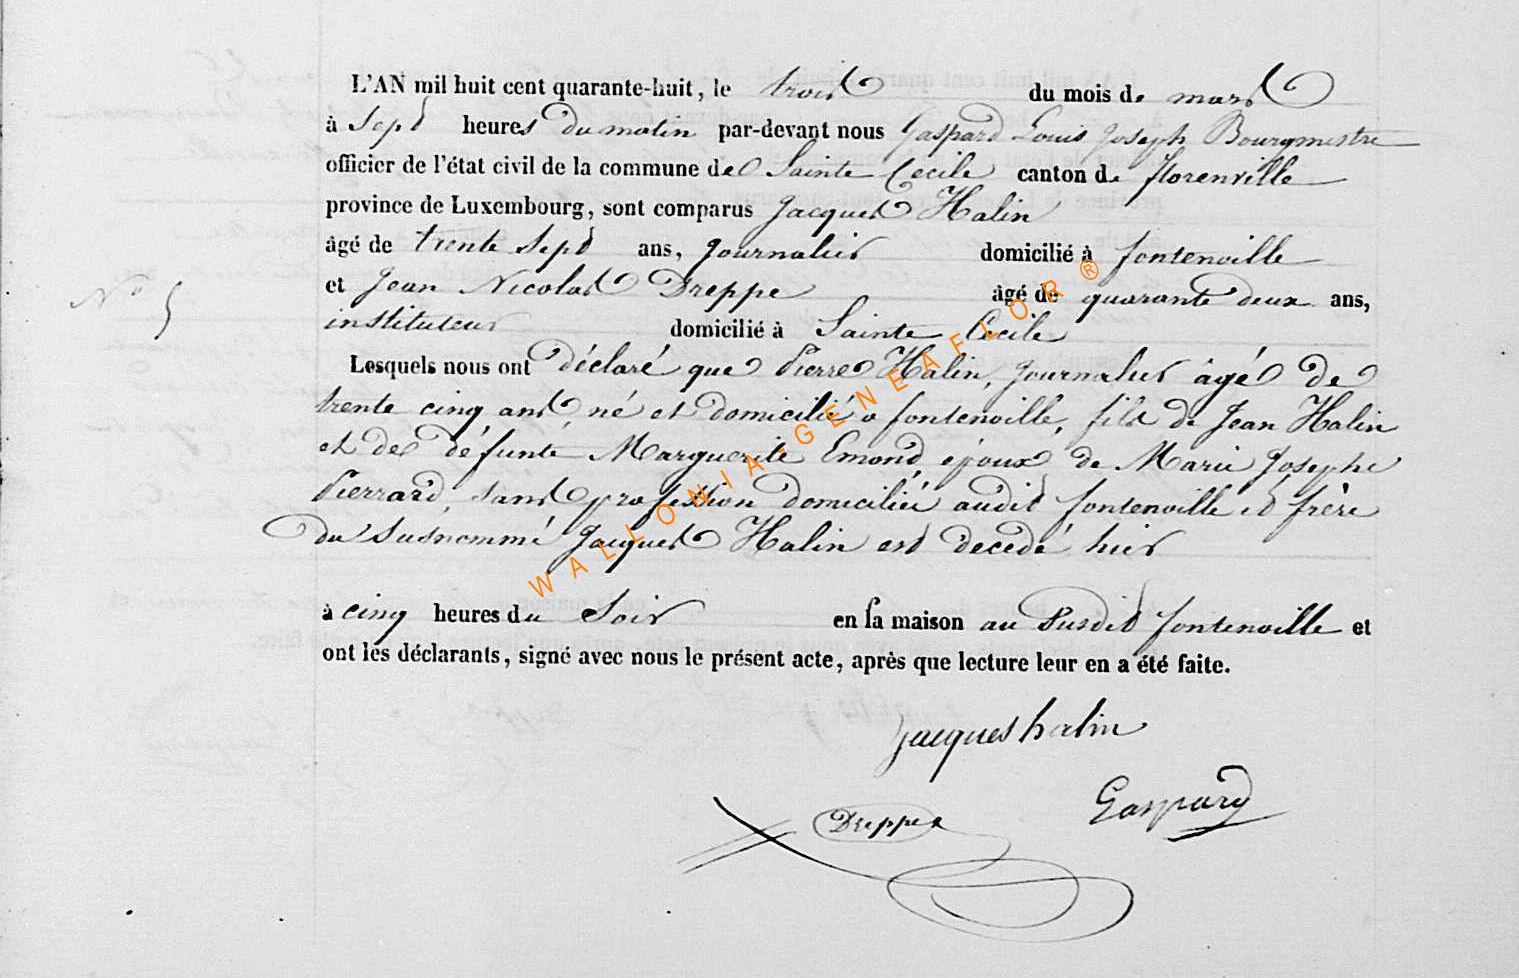 L'AN mil huit cent quarante-huit, le trois du mois de mars
à Sept heures du matin par-devant nous Gaspard Louis Joseph Bourgmestre
officier de l'état civil de la commune de Sainte Cecile canton de florenville
province de Luxembourg, sont comparus Jacques Halin
âgé de trente Sept ans, Journalier domicilié à fontenoille
et Jean Nicolas Dreppe âgé de quarante deux ans,
N° 5
instituteur domicilié à Sainte Cecile
Lesquels nous ont déclaré que Pierre Halin, Journalier âgé de
trente cinq ans né et domicilié a fontenoille, fils de Jean Halin
et de défunte Marguerite Emond, époux de Marie Josephe
Pierrard, sans profession domiciliée audit fontenoille et frère
du Susnommé Jacques Halin est decedé hier
à cinq heures du Soir en la maison au Susdit fontenoille et
ont les déclarants, signé avec nous le présent acte, après que lecture leur en a été faite.
Jacques halin
Gaspard
Dreppe
WALLONIA-GENEAFLOR®